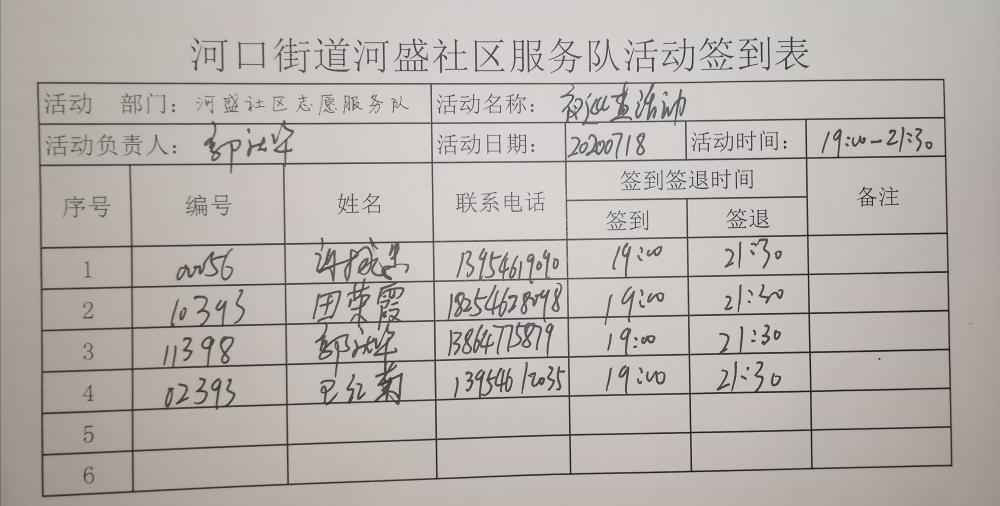 河口街道河盛社区服务队活动签到表
活动 部门：河盛社区志愿服务队 活动名称：夜巡查活动
活动负责人：郭 活动日期：20200718 活动时间：19:00-21:30
序号 编号 姓名 联系电话 签到签退时间 备注
签到 签退
1 00056 13954619090 19:00 21:30
2 10393 田荣霞 18254628098 19:00 21:30
3 11398 郭 13864775879 19:00 21:30
4 02393 红菊 13954612035 19:00 21:30
5
6